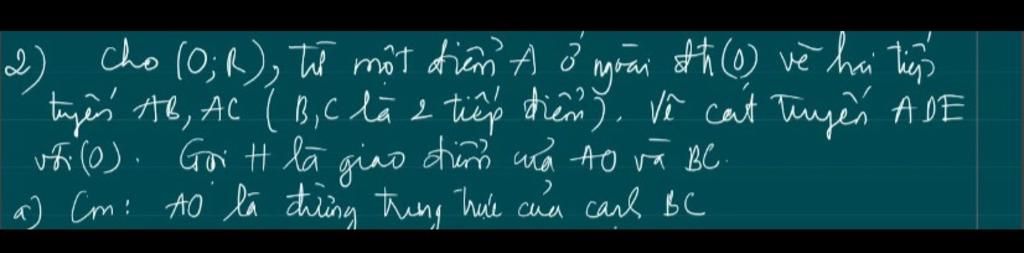 2) Cho (O;R), Từ một điểm A ở ngoài đth (O) vẽ hai tiếp
tuyến AB, AC ( B,C là 2 tiếp điểm). Vẽ cát tuyến ADE
với (O). Gọi H là giao điểm của AO và BC.
a) Cm: AO là đường trung trực của cạnh BC